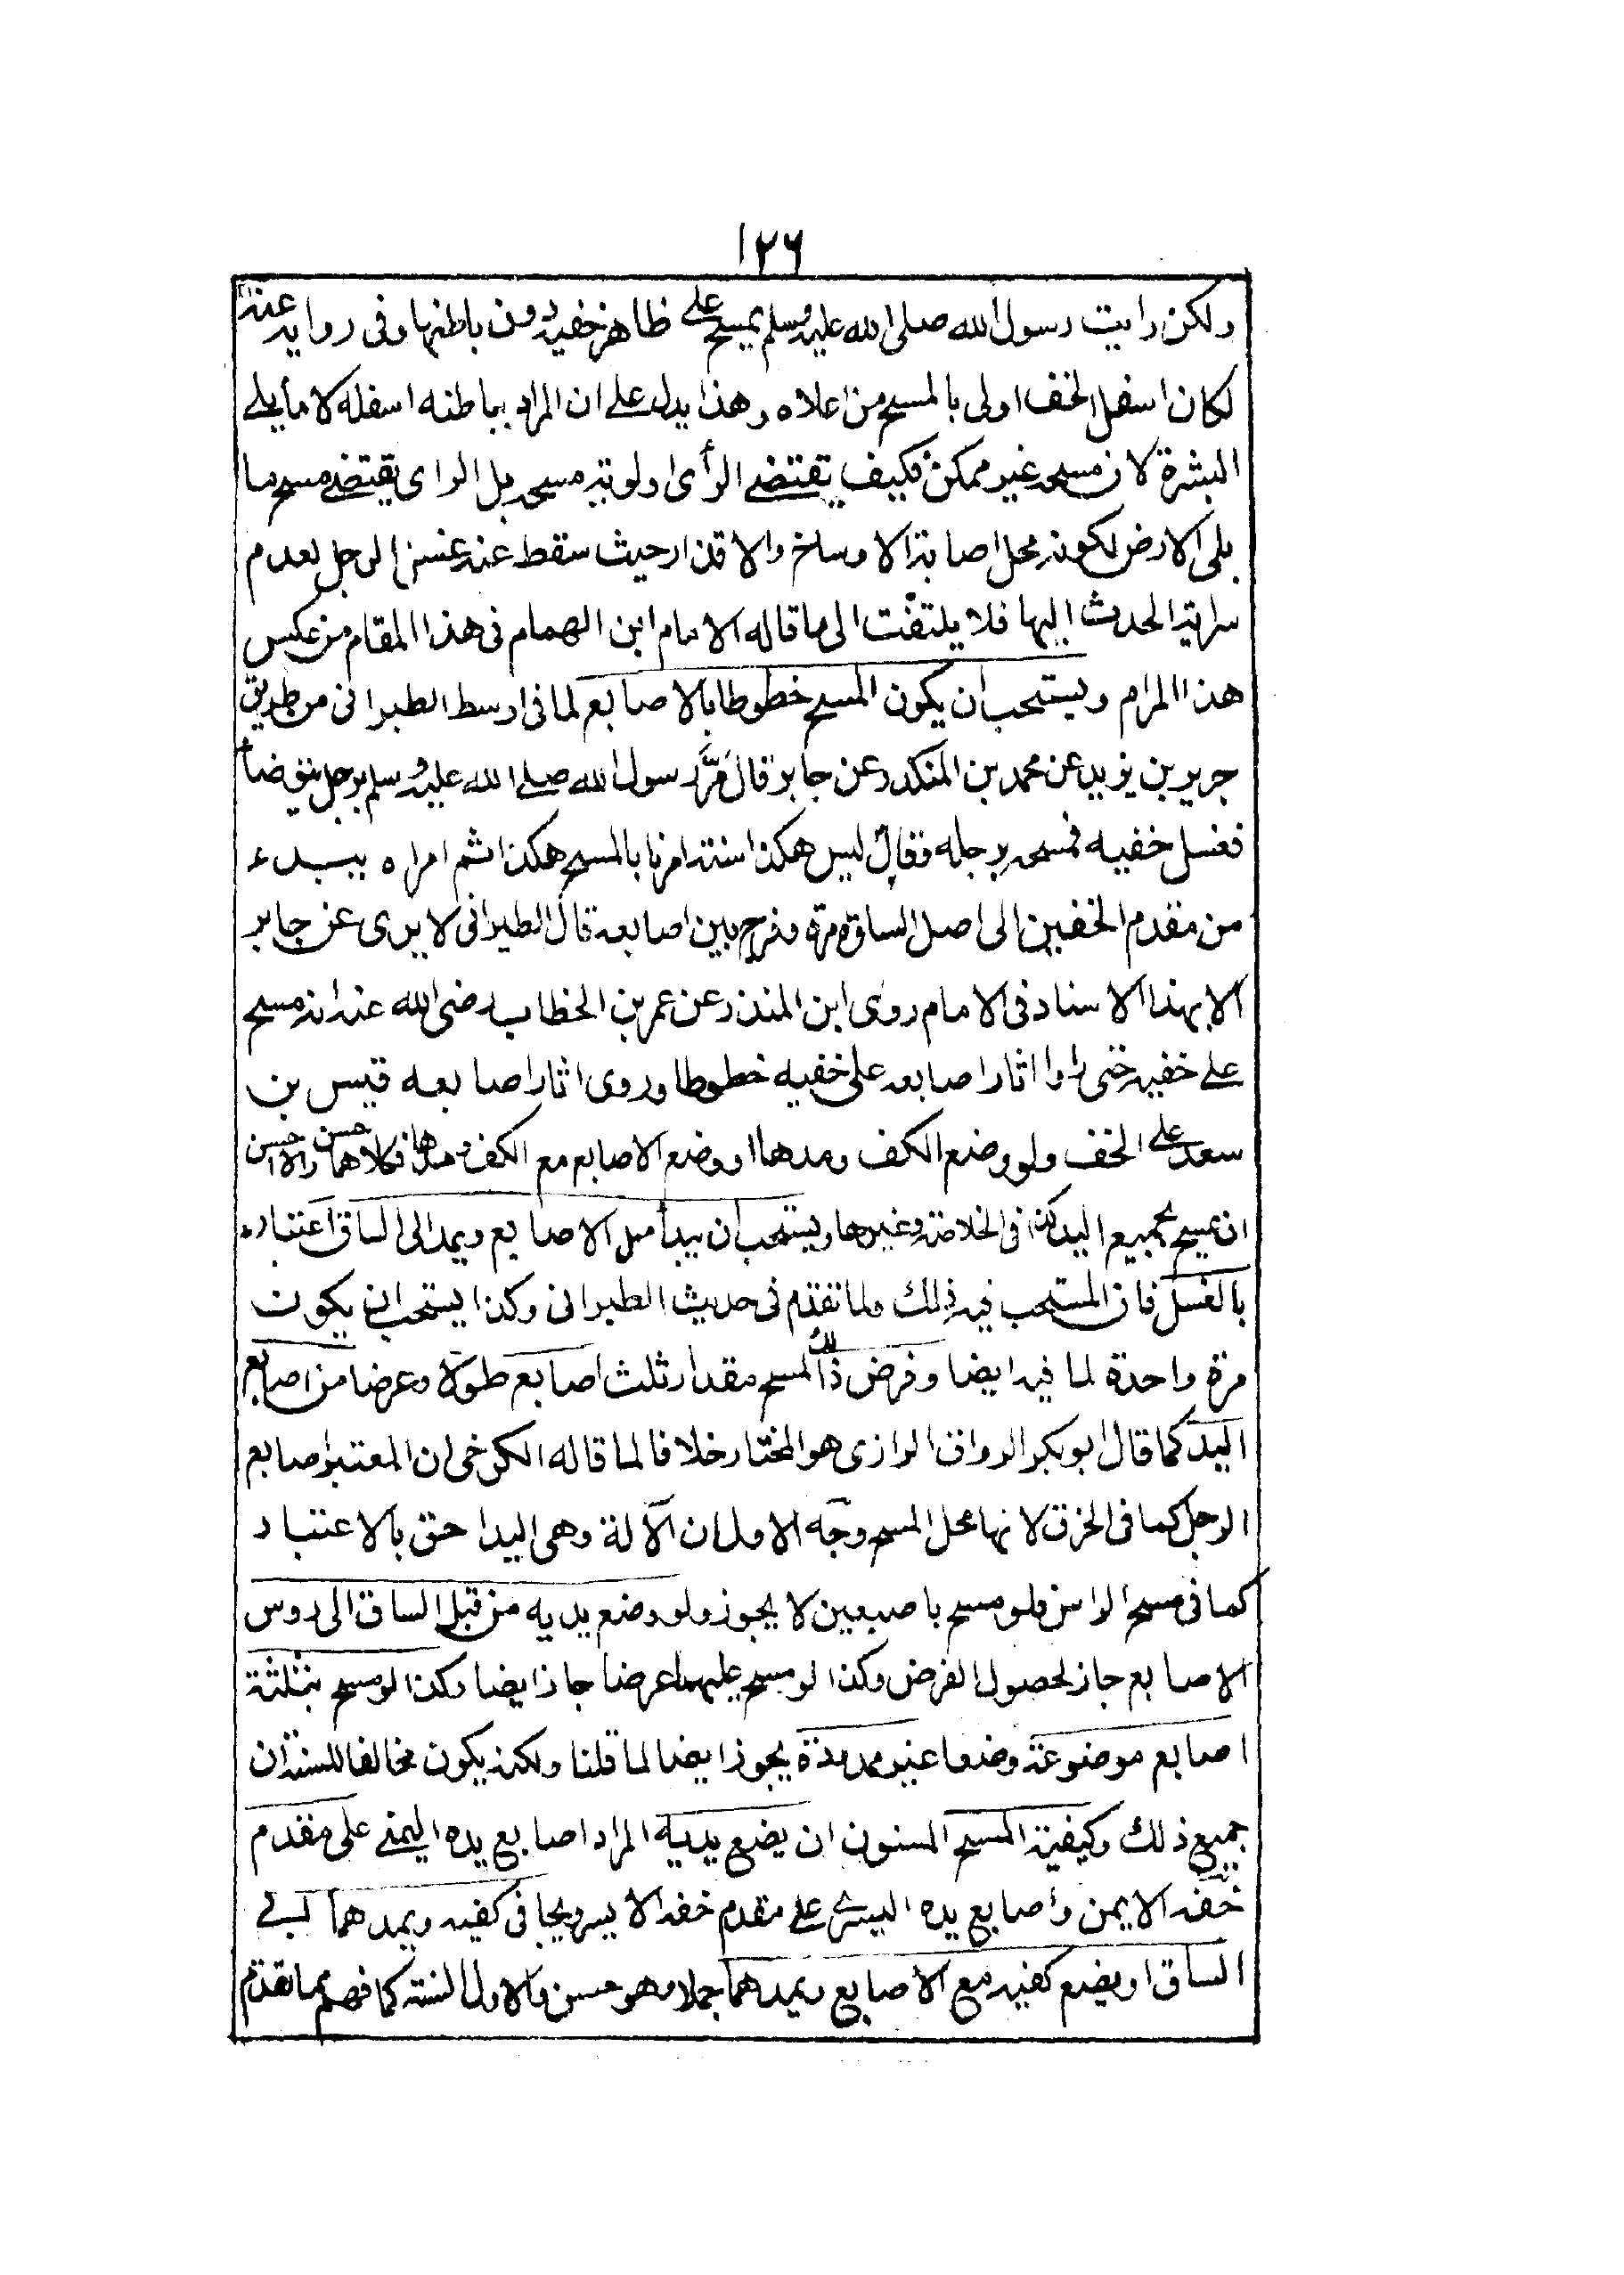 ١٢٦
ولكن رايت رسول الله صلى الله عليه وسلم يمسح على ظاهر خفيه دون باطنها وفى رواية عنه
لكان اسفل الخف اولى بالمسح من اعلاه وهذا يدل على ان المراد بباطنه اسفله لا ما يلى
البشرة لان مسحه غير ممكن فكيف يقتضى الرأى اولوية مسحه بل الراى يقتضى مسح ما
يلى الارض لكونه محل اصابة الاوساخ والاقذار حيث سقط عنه غسل الرجل لعدم
سراية الحدث اليها فلا يلتفت الى ما قاله الامام ابن الهمام فى هذا المقام من عكس
هذا المرام ويستحب ان يكون المسح خطوطا بالاصابع لما فى اوسط الطبرانى من طريق
جرير بن يزيد عن محمد بن المنكدر عن جابر قال مَرَّ رسول الله صلى الله عليه وسلم برجل يتوضأ
فغسل خفيه فمسحه برجله فقال ليس هكذا السنة امرنا بالمسح هكذا ثم امراه يبدء
من مقدم الخفين الى اصل الساق مرة وفرج بين اصابعه قال الطبرانى لا يروى عن جابر
الا بهذا الاسناد فى الامام روى ابن المنذر عن عمر بن الخطاب رضى الله عنه انه مسح
على خفيه حتى راوا اثار اصابعه على خفيه خطوطا وروى اثار اصابعه قيس بن
سعد على الخف ولو وضع الكف ومدها او وضع الاصابع مع الكف ومدها فكلاهما حسن والاحسن
ان يمسح بجميع اليد كذا فى الخلاصة وغيرها ويستحب ان يبدأ من الاصابع ويمد الى الساق اعتبارء
بالغسل فان المستحب فيه ذلك ولما تقدم فى حديث الطبرانى وكذا يستحب ان يكون
مرة واحدة لما فيه ايضا وفرض ذلك المسح مقدار ثلث اصابع طولا وعرضا من اصابع
اليد كما قال ابو بكر الرواق الرازى هو المختار خلافا لما قاله الكرخى ان المعتبر اصابع
الرجل كما فى الخرق لانها محل المسح وجه الاول ان الآلة وهى اليد احق بالاعتبار
كما فى مسح الراس فلو مسح باصبعين لا يجوز ولو وضع يديه من قبل الساق الى روس
الاصابع جاز لحصول الفرض وكذا لو مسح عليهما عرضا جاز ايضا وكذا لو مسح بثلثة
اصابع موضوعة وضعا غير ممدودة يجوز ايضا لما قلنا ولكنه يكون مخالفا للسنة ان
جميع ذلك وكيفية المسح المسنون ان يضع يديه المراد اصابع يده اليمنى على مقدم
خفه الايمن واصابع يده اليسرى على مقدم خفه الايسر ويجافى كفيه ويمدهما الى
الساق او يضع كفيه مع الاصابع ويمدهما جملا وهو حسن والاول السنة كما فهم مما تقدم